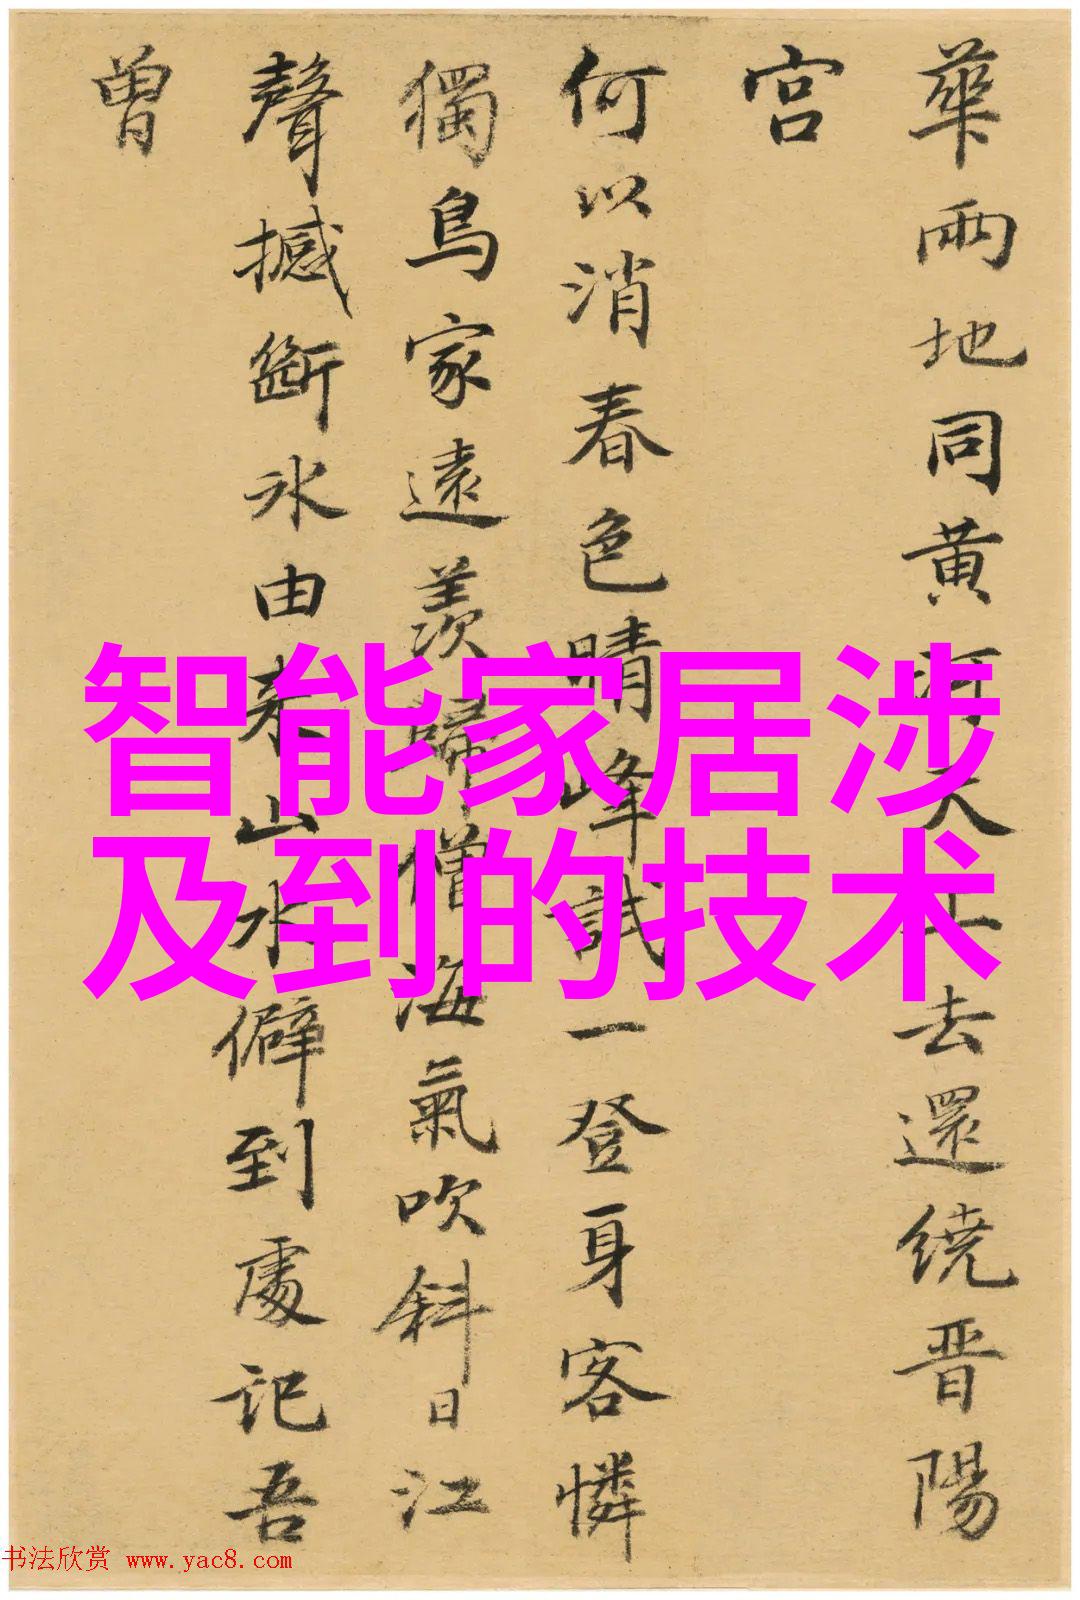 華兩地同黄河天上去還繞晋陽
宫
何以消春色晴峰試一登身客憐
獨鳥家遠羨歸僧海氣吹斜日江
聲撼斷冰由來山水僻到處記吾
曾
智能家居涉
及到的技术
书法欣赏 www.yac8.com